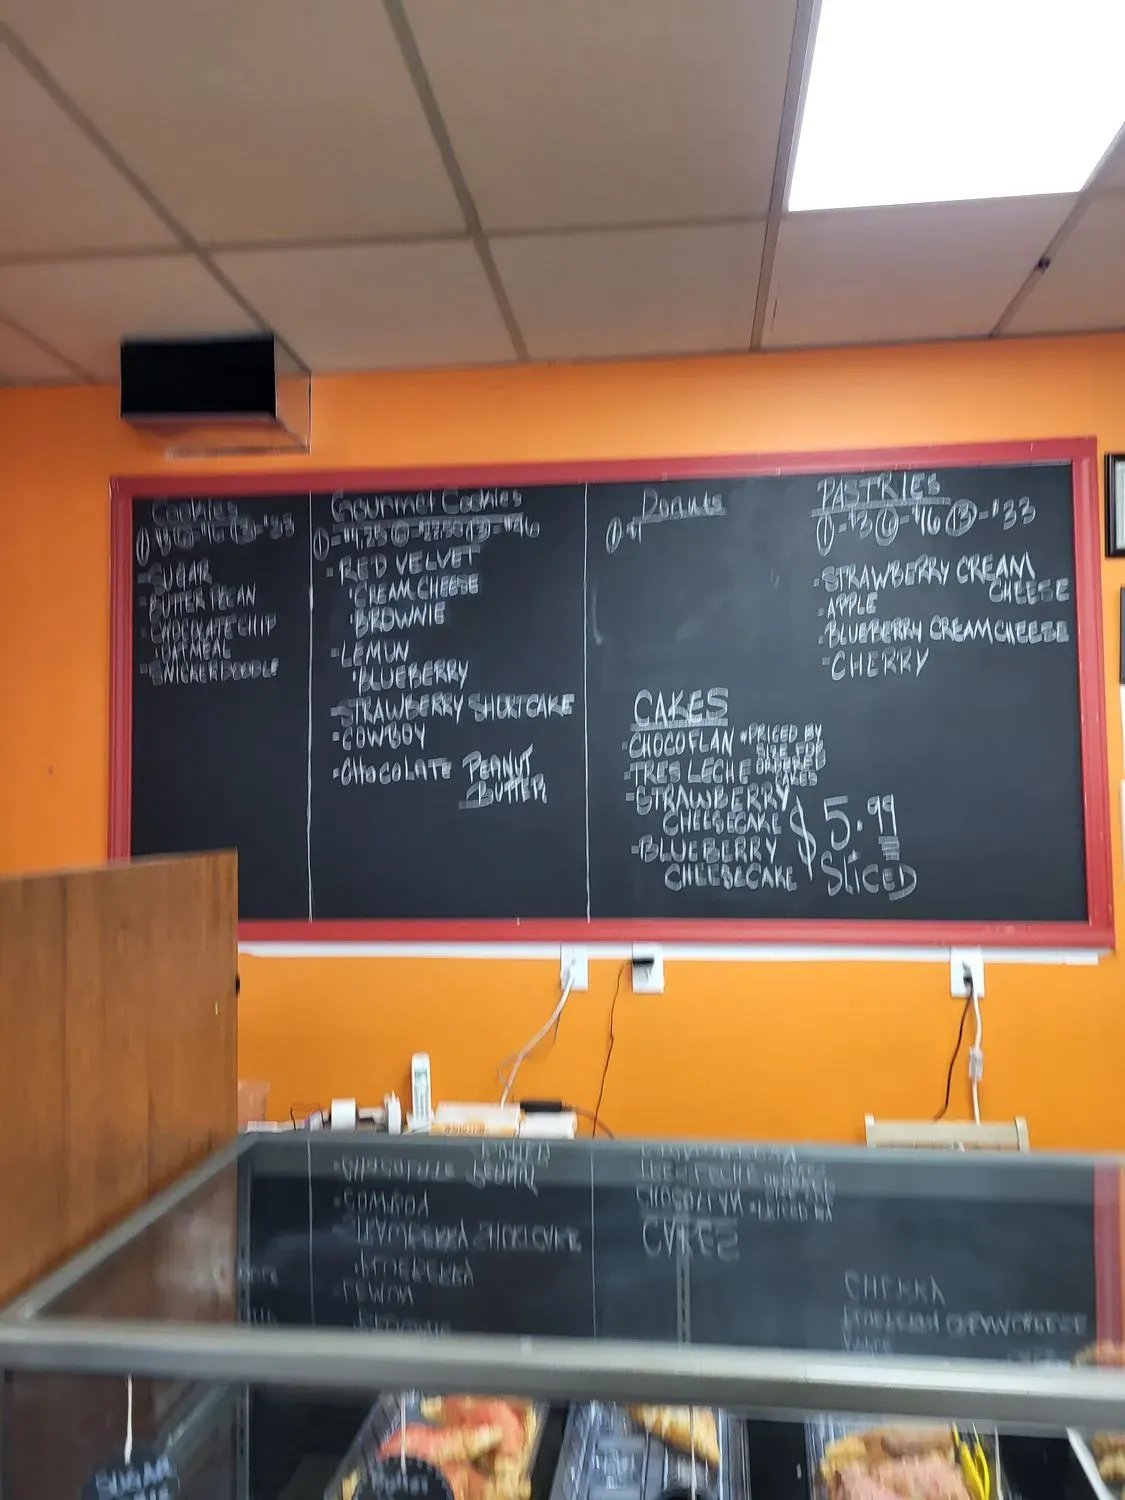 Cookies
① $3 ⑥-$16 ⑬-$33
-SUGAR
-BUTTER PECAN
-CHOCOLATE CHIP
-OATMEAL
-SNICKERDOODLE
Gourmet Cookies
①-$4.25 ⑥-22.50 ⑬-$46
-RED VELVET
-CREAM CHEESE
-BROWNIE
-LEMON
-BLUEBERRY
-STRAWBERRY SHORTCAKE
-COWBOY
-CHOCOLATE PEANUT
BUTTER
Donuts
PASTRIES
①-$3 ⑥-$16 ⑬-$33
-STRAWBERRY CREAM
CHEESE
-APPLE
-BLUEBERRY CREAM CHEESE
-CHERRY
CAKES
-CHOCOFLAN
-TRES LECHE
-STRAWBERRY
CHEESECAKE
-BLUEBERRY
CHEESECAKE
*PRICED BY
SIZE FOR
ORDERED
CAKES
$5.99
SLICED
SUGAR